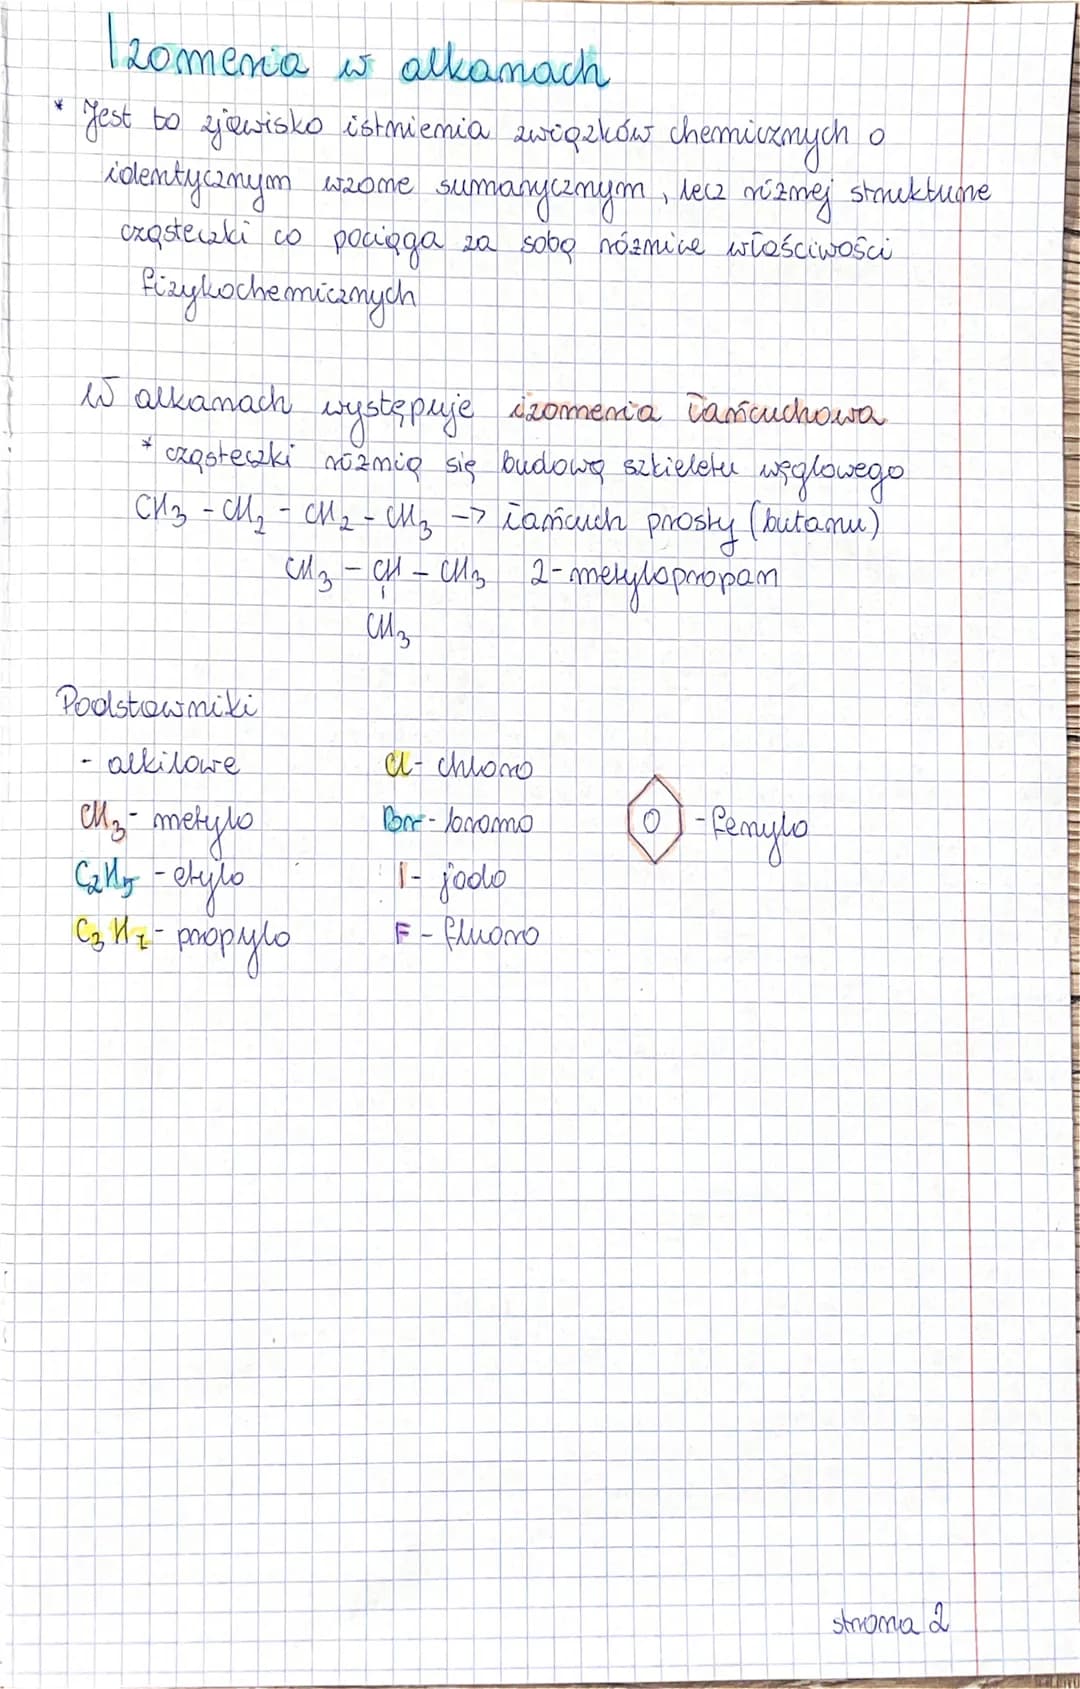 Izomeria w alkanach
* Jest to zjawisko istnienia związków chemicznych o
identycznym wzorze sumarycznym, lecz różnej strukturze
cząsteczki co pociąga za sobą różnice właściwości
fizykochemicznych
W alkanach występuje izomeria łańcuchowa
* cząsteczki różnią się budową szkieletu węglowego
CH3 - CH2 - CH2 - CH3 -> łańcuch prosty (butanu)
CH3 - CH - CH3 2-metylopropan
CH3
Podstawniki
- alkilowe
CH3 - metylo
C2H5 - etylo
C3H7 - propylo
Cl - chloro
Br - bromo
I - jodo
F - fluoro
- fenylo
strona 2